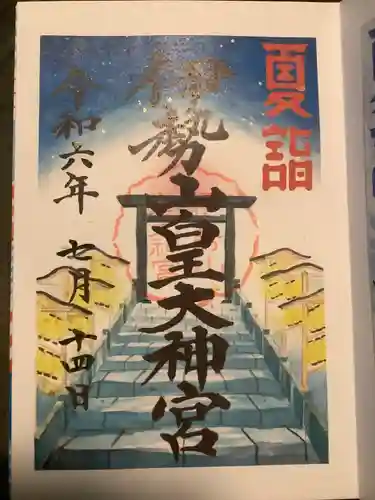 夏詣
伊勢山皇大神宮
令和六年 七月十四日